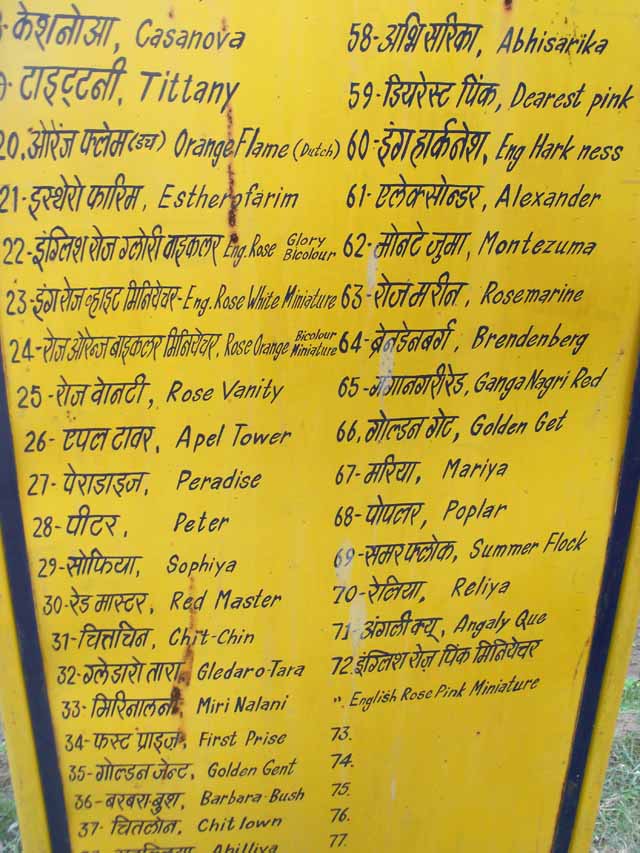 केशनोआ, Casanova
टाइटटनी, Tittany
20. औरेंज फ्लेम (डच) Orange Flame (Dutch)
21-इस्थेरो फारिम, Estherofarim
22-इंग्लिश रोज ग्लोरी वाइकलर Eng. Rose Glory Bicolour
23-इंग रोज व्हाइट मिनियेचर-Eng. Rose White Miniature
24-रोज औरेन्ज बाइकलर मिनियेचर, Rose Orange Bicolour Miniature
25-रोज वेानटी, Rose Vanity
26-एपल टावर, Apel Tower
27-पेराडाइज, Peradise
28-पीटर, Peter
29-सोफिया, Sophiya
30-रेड मास्टर, Red Master
31-चित्तचिन, Chit-Chin
32-ग्लेडारो तारा, Gledaro-Tara
33-मिरिनालनी Miri Nalani
34-फस्ट प्राइज, First Prise
35-गोल्डन जेन्ट, Golden Gent
36-बरबरा-बुश, Barbara-Bush
37-चितलोन, Chitlown
Ahilliya
58-अभिसरिका, Abhisarika
59-डियरेस्ट पिंक, Dearest pink
60-इंग हार्कनेश, Eng Hark ness
61-एलेक्सोन्डर, Alexander
62-मोनटे जुमा, Montezuma
63-रोजमरीन, Rosemarine
64-ब्रेनडेनबर्ग, Brendenberg
65-गंगानगरीरेड, Ganga Nagri Red
66. गोल्डन गेट, Golden Get
67-मरिया, Mariya
68-पोपलर, Poplar
69-समर फ्लोक, Summer Flock
70-रेलिया, Reliya
71-अंगली क्यू, Angaly Que
72. इंग्लिश रोज़ पिंक मिनियेचर
" English Rose Pink Miniature
73.
74.
75.
76.
77.